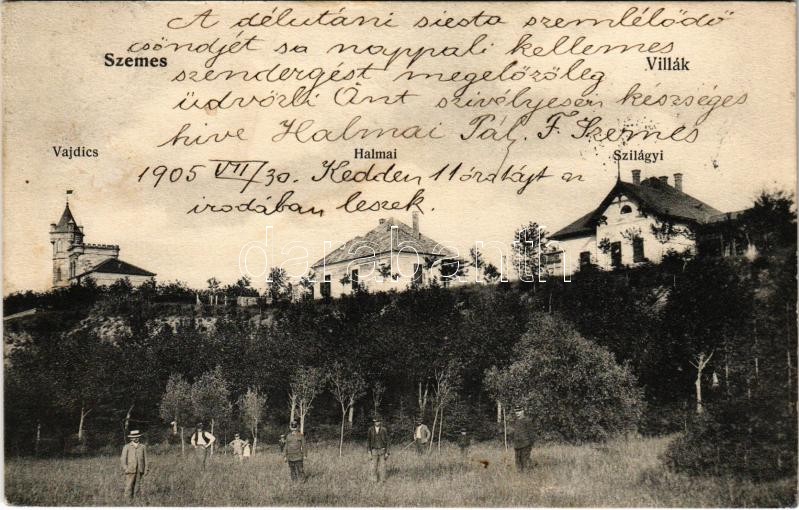 A délutáni siesta szemlélődő
csöndjét sa nappali kellemes
Szemes
szendergést megelőzőleg
Villák
üdvözli Önt szivélyesen készséges
hive Halmai Pál. F. Szemes
Vajdics
Halmai
Szilágyi
1905 VII/30. Kedden 11 óra tájt a
irodában leszek.
darabanth